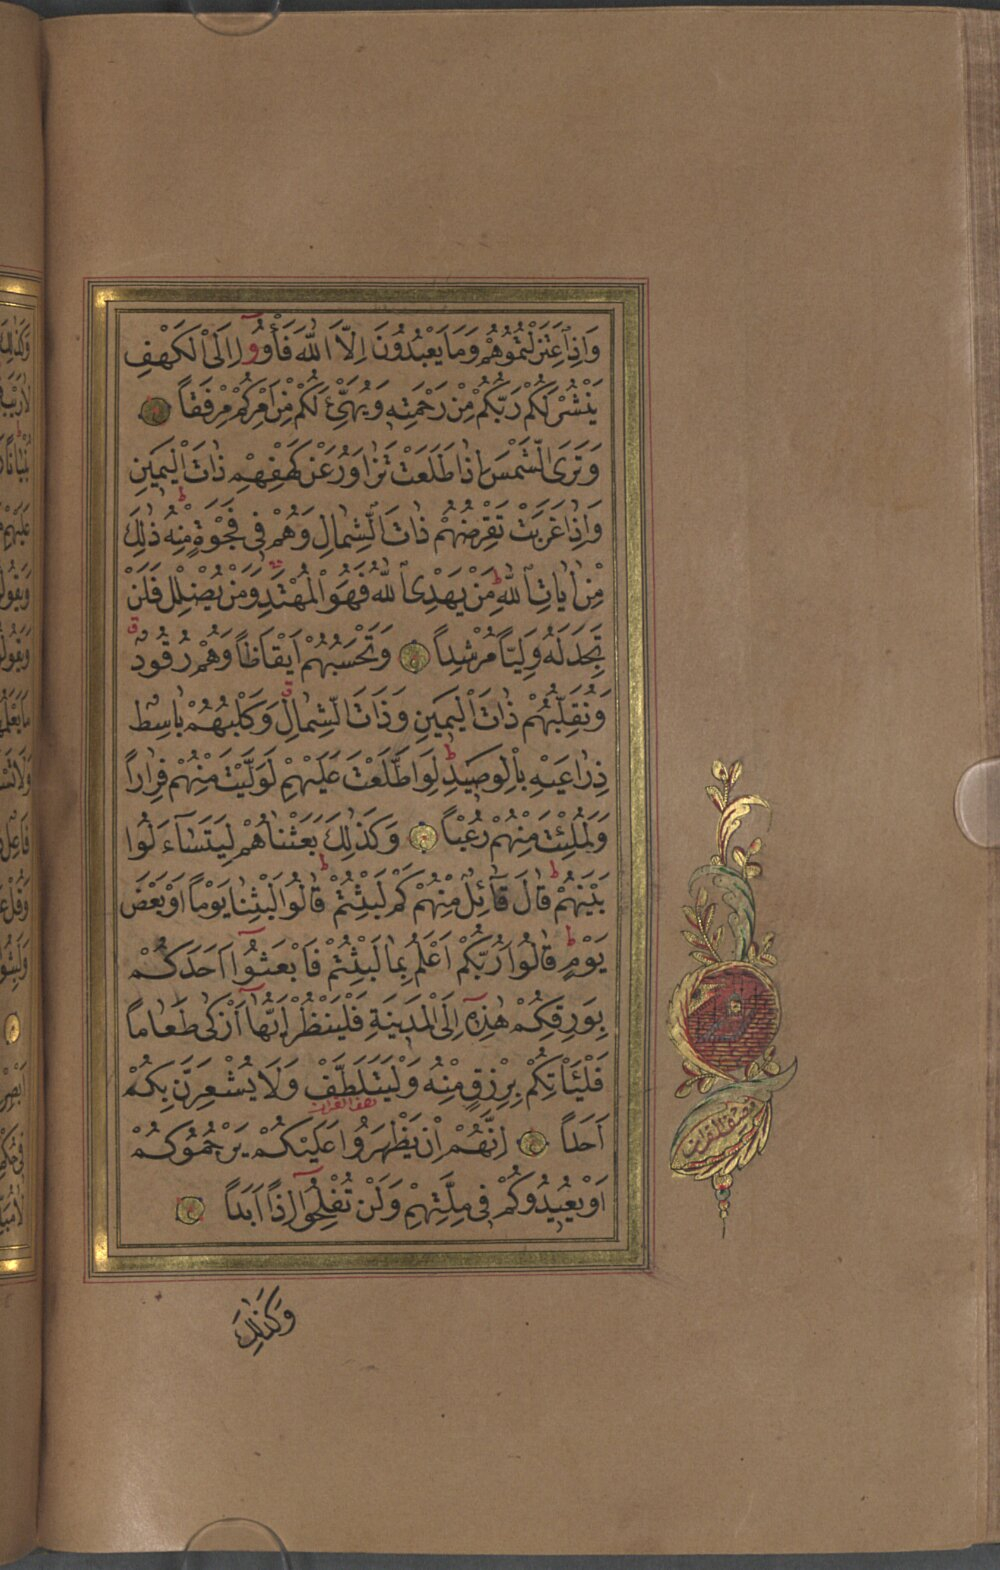 وَاِذِ اعْتَزَلْتُمُوهُمْ وَمَا يَعْبُدُونَ اِلَّا اللّٰهَ فَأْوُوا اِلَى الْكَهْفِ
يَنْشُرْ لَكُمْ رَبُّكُمْ مِنْ رَحْمَتِهِ وَيُهَيِّئْ لَكُمْ مِنْ اَمْرِكُمْ مِرْفَقًا
وَتَرَى الشَّمْسَ اِذَا طَلَعَتْ تَزَاوَرُ عَنْ كَهْفِهِمْ ذَاتَ الْيَمِينِ
وَاِذَا غَرَبَتْ تَقْرِضُهُمْ ذَاتَ الشِّمَالِ وَهُمْ فِى فَجْوَةٍ مِنْهُ ط ذٰلِكَ
مِنْ اٰيَاتِ اللّٰهِ ط مَنْ يَهْدِى اللّٰهُ فَهُوَ الْمُهْتَدِ وَمَنْ يُضْلِلْ فَلَنْ
تَجِدَ لَهُ وَلِيًّا مُرْشِدًا وَتَحْسَبُهُمْ اَيْقَاظًا وَهُمْ رُقُودٌ ق
وَنُقَلِّبُهُمْ ذَاتَ الْيَمِينِ وَذَاتَ الشِّمَالِ ق وَكَلْبُهُمْ بَاسِطٌ
ذِرَاعَيْهِ بِالْوَصِيدِ ط لَوِ اطَّلَعْتَ عَلَيْهِمْ لَوَلَّيْتَ مِنْهُمْ فِرَارًا
وَلَمُلِئْتَ مِنْهُمْ رُعْبًا وَكَذٰلِكَ بَعَثْنَاهُمْ لِيَتَسَآءَلُوا
بَيْنَهُمْ ط قَالَ قَآئِلٌ مِنْهُمْ كَمْ لَبِثْتُمْ ط قَالُوا لَبِثْنَا يَوْمًا اَوْ بَعْضَ
يَوْمٍ ط قَالُوا رَبُّكُمْ اَعْلَمُ بِمَا لَبِثْتُمْ فَابْعَثُوا اَحَدَكُمْ
بِوَرِقِكُمْ هٰذِهِ اِلَى الْمَدِينَةِ فَلْيَنْظُرْ اَيُّهَا اَزْكٰى طَعَامًا
فَلْيَأْتِكُمْ بِرِزْقٍ مِنْهُ وَلْيَتَلَطَّفْ وَلَا يُشْعِرَنَّ بِكُمْ
نصف القرآن
اَحَدًا اِنَّهُمْ اِنْ يَظْهَرُوا عَلَيْكُمْ يَرْجُمُوكُمْ
اَوْ يُعِيدُوكُمْ فِى مِلَّتِهِمْ وَلَنْ تُفْلِحُوا اِذًا اَبَدًا
وَكَذٰلِكَ
نصف القرآن